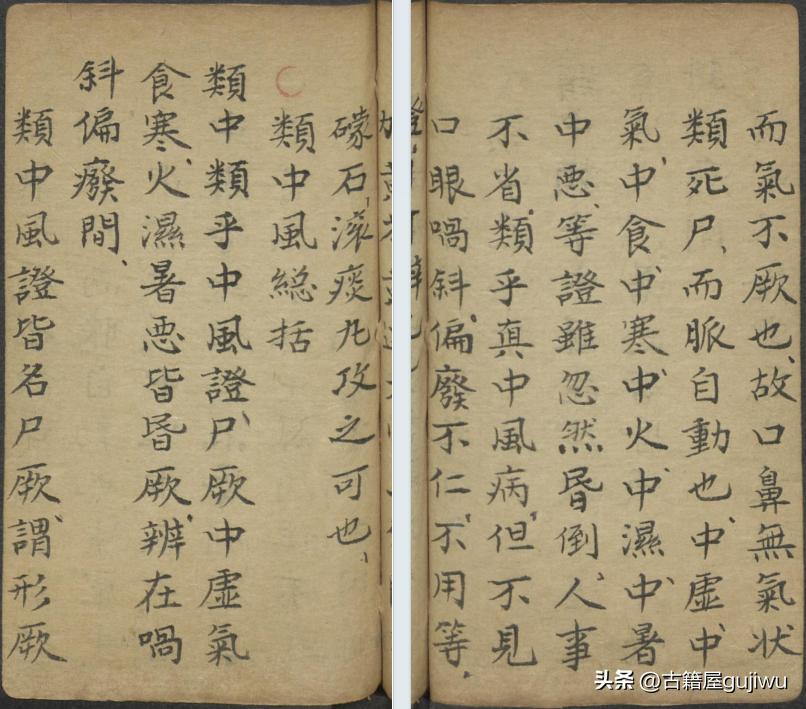 礞石、滚痰丸攻之可也、
類中風総括
類中類乎中風證、尸厥中虛氣
食寒、火濕暑恶皆昏厥、辨在喎
斜偏癈間、
類中風證皆名尸厥、謂形厥
而氣不厥也、故口鼻無氣状
類死尸、而脈自動也、中虛、中
氣、中食、中寒、中火、中濕、中暑
中恶、等證雖忽然昏倒、人事
不省、類乎真中風病、但不見
口眼喎斜、偏廢不仁、不用等、
头条 @古籍屋gujiwu